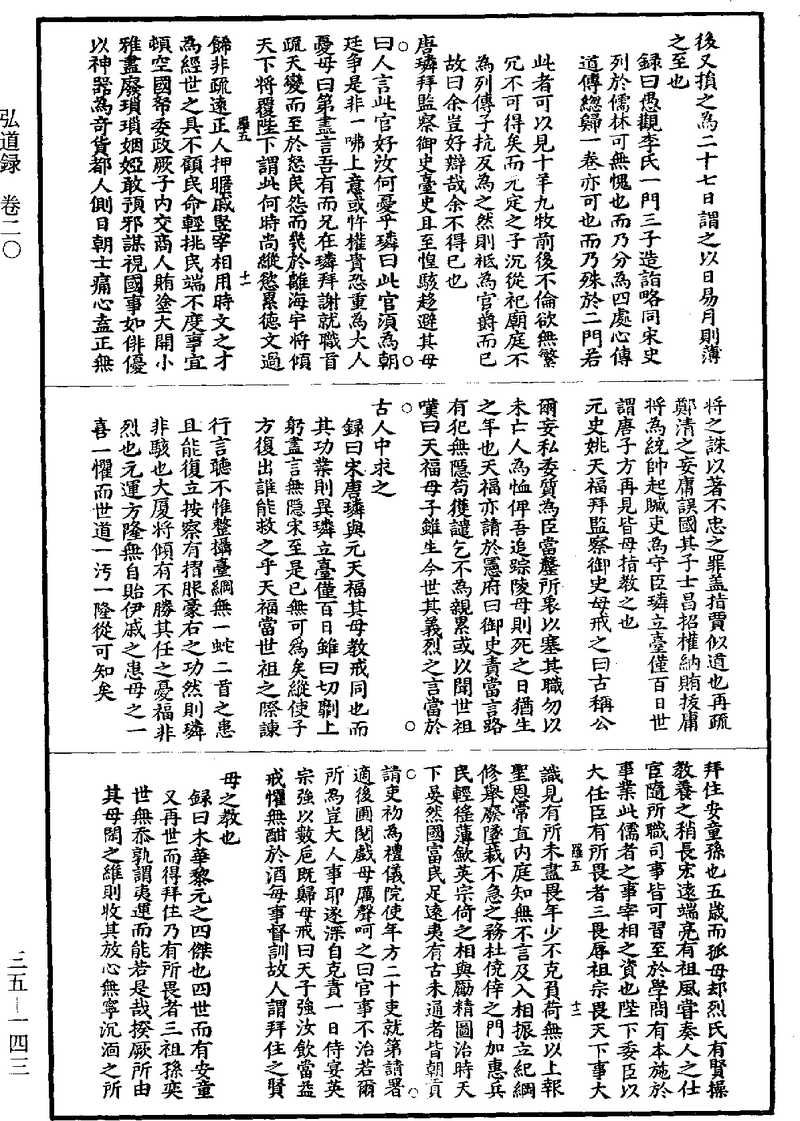 弘道録　卷二〇
三五—一四三
後又損之為二十七日謂之以日易月則薄
之至也
録曰愚觀李氏一門三子造詣略同宋史
列於儒林可無愧也而乃分為四處心傳
道傳總歸一卷亦可也而乃殊於二門若
此者可以見十羊九牧前後不倫欲無繁
冗不可得矣而元定之子沉從祀廟庭不
為列傳子抗反為之然則秪為官爵而已
故曰余豈好辯哉余不得已也
唐璘拜監察御史臺史且至惶駭趍避其母
曰人言此官好汝何憂乎璘曰此官須為朝
廷争是非一咈上意或忤權貴恐重為大人
憂母曰第盡言吾有而兄在璘拜謝就職首
疏天變而至於怒民怨而幾於離海宇將傾
天下將覆陛下謂此何時尚縱慾累德文過
羅五
十一
飾非疏遠正人押暱戚竪宰相用時文之才
為經世之具不顧民命輕挑民端不度事宜
頓空國帑委政厥子內交商人賄塗大開小
雅盡廢瑣瑣姻婭敢預邪謀視國事如俳優
以神器為奇貨都人側目朝士痛心盍正無
將之誅以著不忠之罪盖指賈似道也再疏
鄭清之妄庸誤國其子士昌招權納賄拔庸
將為統帥起贓吏為守臣璘立臺僅百日世
謂唐子方再見皆母指教之也
元史姚天福拜監察御史母戒之曰古稱公
爾妄私委質為臣當罄所衷以塞其職勿以
未亡人為恤俾吾追踪陵母則死之日猶生
之年也天福亦請於憲府曰御史責當言路
有犯無隠苟獲譴乞不為親累或以聞世祖
嘆曰天福母子雖生今世其義烈之言當於
古人中求之
録曰宋唐璘與元天福其母教戒同也而
其功業則異璘立臺僅百日雖曰切劘上
躬盡言無隠宋至是已無可為矣縱使子
方復出誰能救之乎天福當世祖之際諫
行言聽不惟整攝臺綱無一蛇二首之患
且能復立按察有摺服豪右之功然則璘
非駭也大厦將傾有不勝其任之憂福非
烈也元運方隆無自貽伊戚之患母之一
喜一懼而世道一汚一隆從可知矣
拜住安童孫也五歲而孤母却烈氏有賢操
教養之稍長宏遠端亮有祖風嘗奏人之仕
官隨所職司事皆可習至於學問有本施於
事業此儒者之事宰相之資也陛下委臣以
大任臣有所畏者三畏辱祖宗畏天下事大
羅五
十二
識見有所未盡畏年少不克負荷無以上報
聖恩常直內庭知無不言及入相振立紀綱
修舉廢墜裁不急之務杜僥倖之門加惠兵
民輕徭薄歛英宗倚之相與勵精圖治時天
下晏然國富民足遠夷有古未通者皆朝貢
請吏初為禮儀院使年方二十吏就第請署
適後圃閱戲母厲聲呵之曰官事不治若爾
所為豈大人事耶遂深自克責一日侍宴英
宗強以數巵既歸母戒曰天子強汝飲當益
戒懼無酣於酒每事督訓故人謂拜住之賢
母之教也
録曰木華黎元之四傑也四世而有安童
又再世而得拜住乃有所畏者三祖孫奕
世無忝孰謂夷運而能若是哉揆厥所由
其母閑之維則收其放心無寧沉湎之所